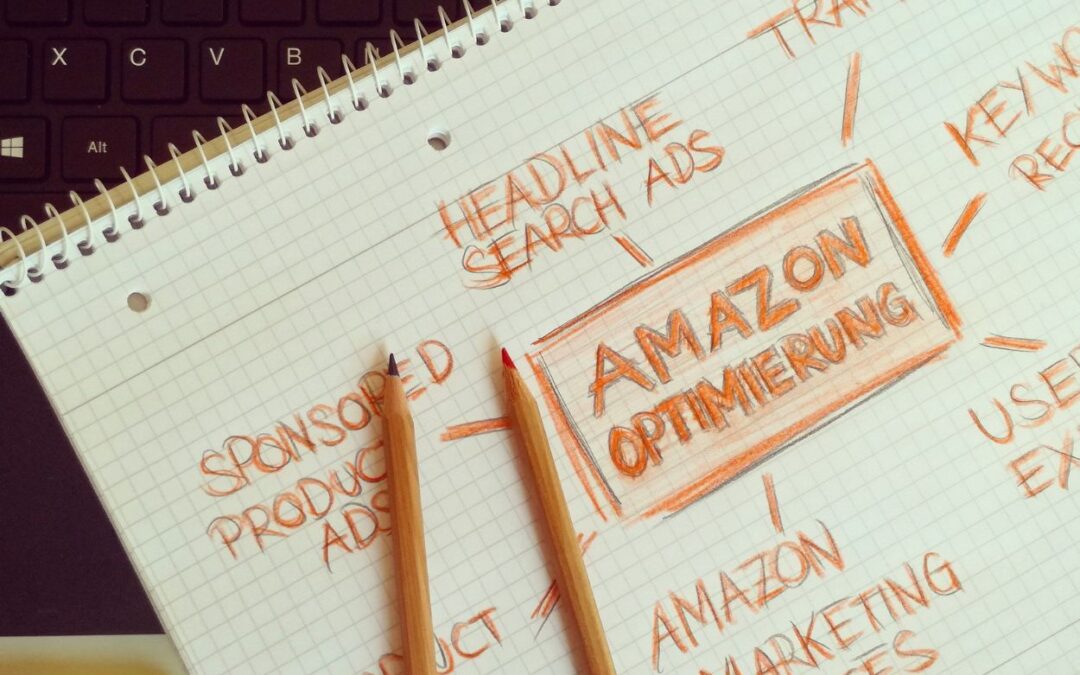 X C V B
Alt
TRA
KEYWO
REC
HEADLINE
SEARCH ADS
AMAZON
OPTIMIERUNG
SPONSORED
PRODUCT
ADS
USE
EX
AMAZON
MARKETING
DUCT
ES